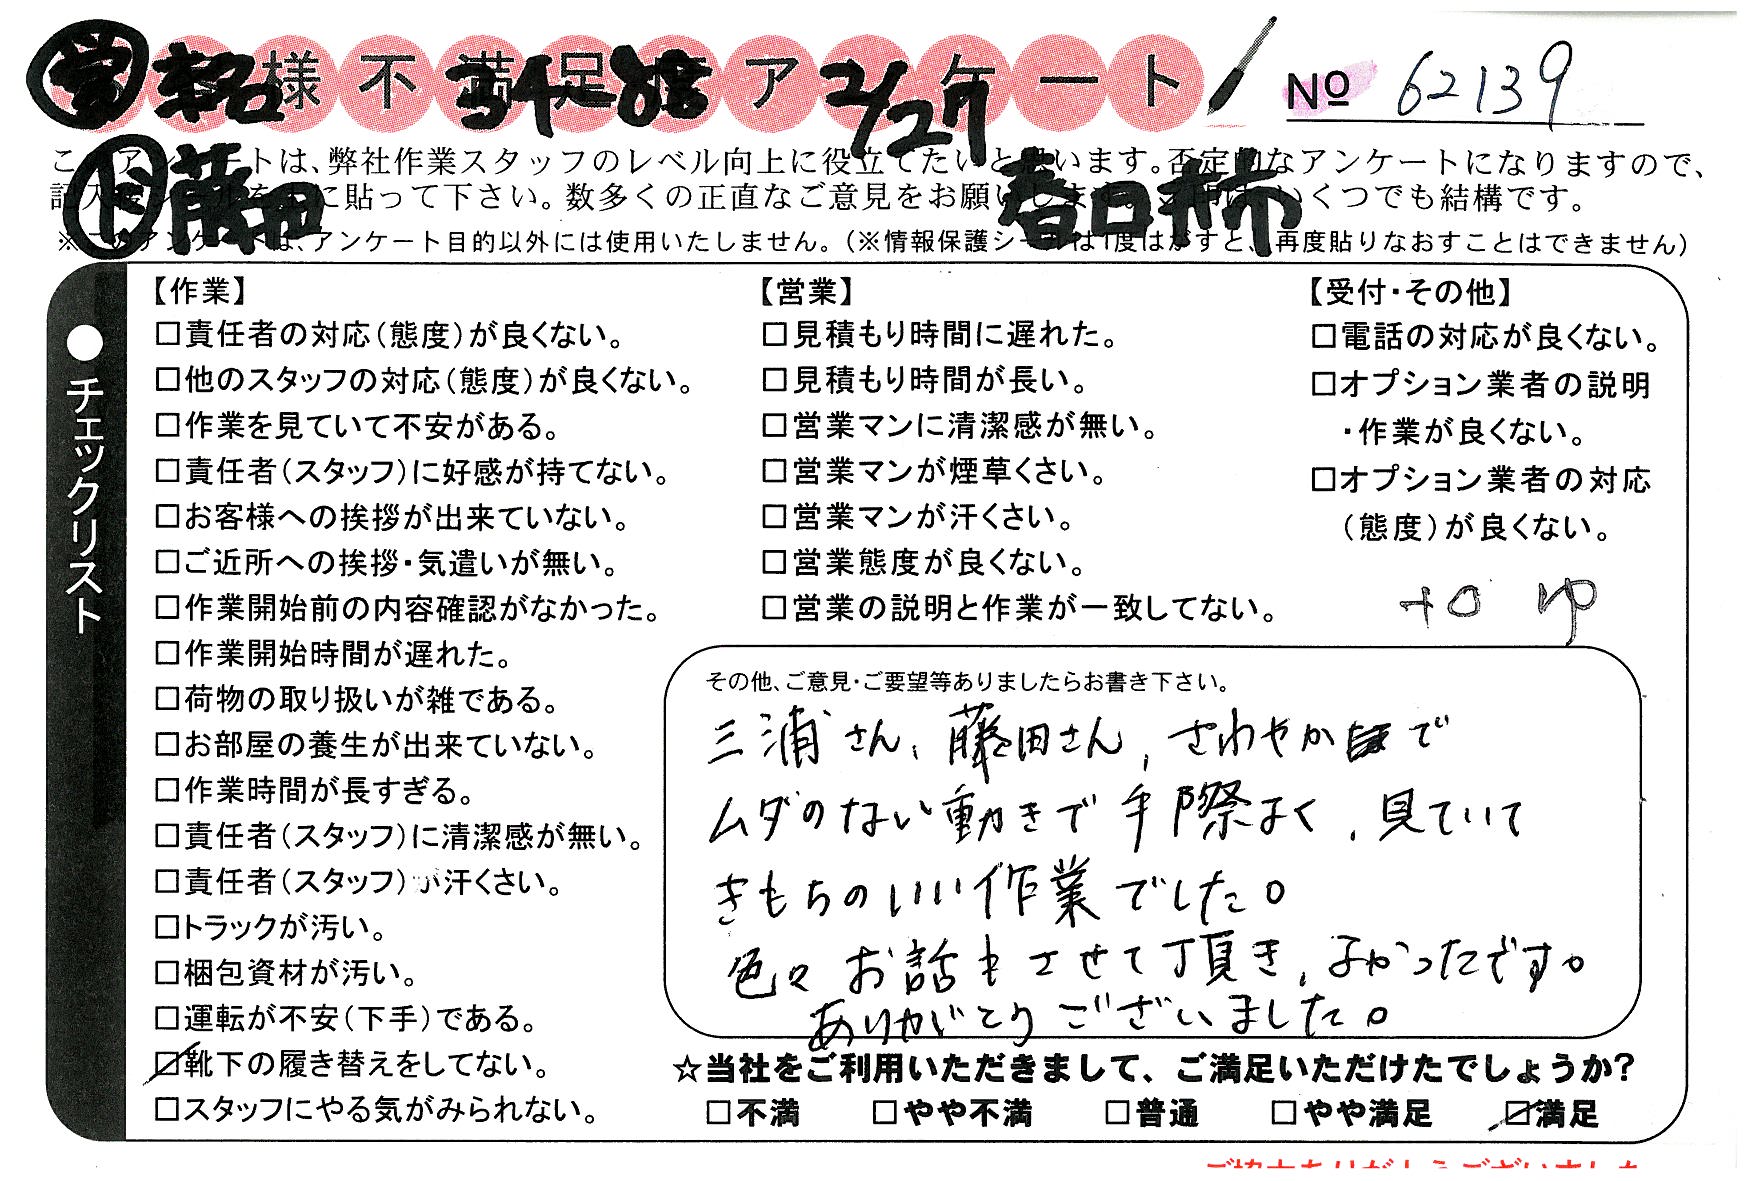 様不満足度アンケート
No 62139
2/27
藤田
春日井市
このアンケートは、弊社作業スタッフのレベル向上に役立てたいと思います。否定的なアンケートになりますので、
に貼って下さい。数多くの正直なご意見をお願いします。 いくつでも結構です。
※このアンケートは、アンケート目的以外には使用いたしません。(※情報保護シールは1度はがすと、再度貼りなおすことはできません)
●チェックリスト
【作業】
□責任者の対応(態度)が良くない。
□他のスタッフの対応(態度)が良くない。
□作業を見ていて不安がある。
□責任者(スタッフ)に好感が持てない。
□お客様への挨拶が出来ていない。
□ご近所への挨拶・気遣いが無い。
□作業開始前の内容確認がなかった。
□作業開始時間が遅れた。
□荷物の取り扱いが雑である。
□お部屋の養生が出来ていない。
□作業時間が長すぎる。
□責任者(スタッフ)に清潔感が無い。
□責任者(スタッフ)が汗くさい。
□トラックが汚い。
□梱包資材が汚い。
□運転が不安(下手)である。
☑靴下の履き替えをしてない。
□スタッフにやる気がみられない。
【営業】
□見積もり時間に遅れた。
□見積もり時間が長い。
□営業マンに清潔感が無い。
□営業マンが煙草くさい。
□営業マンが汗くさい。
□営業態度が良くない。
□営業の説明と作業が一致してない。
【受付・その他】
□電話の対応が良くない。
□オプション業者の説明
・作業が良くない。
□オプション業者の対応
(態度)が良くない。
その他、ご意見・ご要望等ありましたらお書き下さい。
三浦さん、藤田さん、さわやかで
ムダのない動きで手際よく、見ていて
きもちのいい作業でした。
色々お話もさせて頂き、よかったです。
ありがとうございました。
☆当社をご利用いただきまして、ご満足いただけたでしょうか?
□不満 □やや不満 □普通 □やや満足 ☑満足
ご協力ありがとうございました